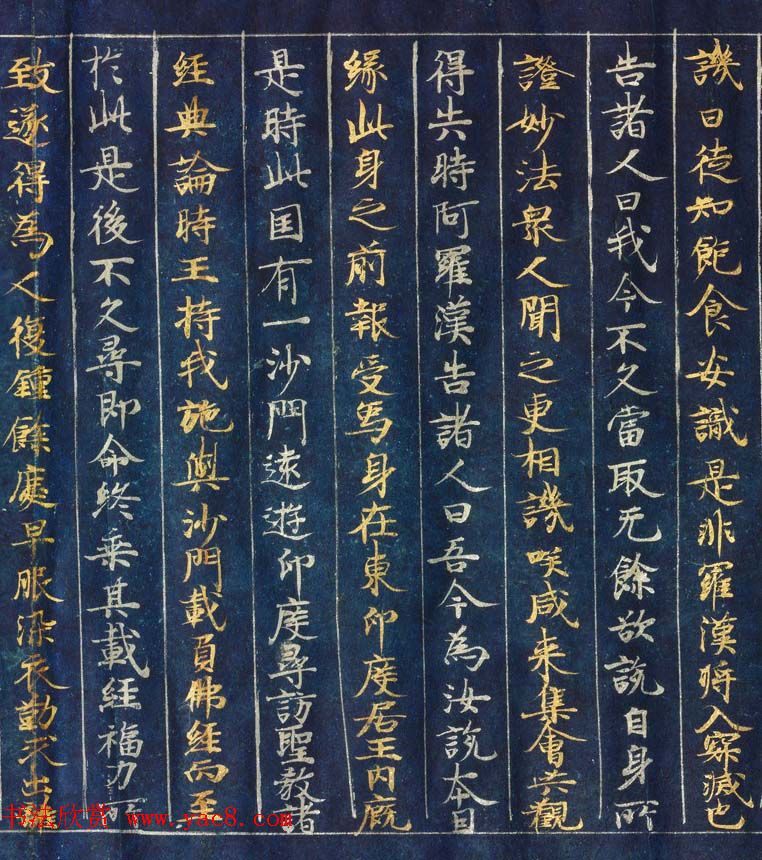 譏曰徒知飽食安識是非羅漢將入寂滅也
告諸人曰我今不久當取无餘欲説自身所
證妙法衆人聞之更相譏咲咸来集會共觀
得失時阿羅漢告諸人曰吾今為汝説本因
緣此身之前報受象身在東印度居王内厩
是時此国有一沙門遠遊印度尋訪聖教諸
經典論時王持我施與沙門載負佛經而至
於此是後不久尋即命終乘其載經福力所
致遂得為人復鍾餘慶早服染衣勤求出
书法欣赏 www.yac8.com